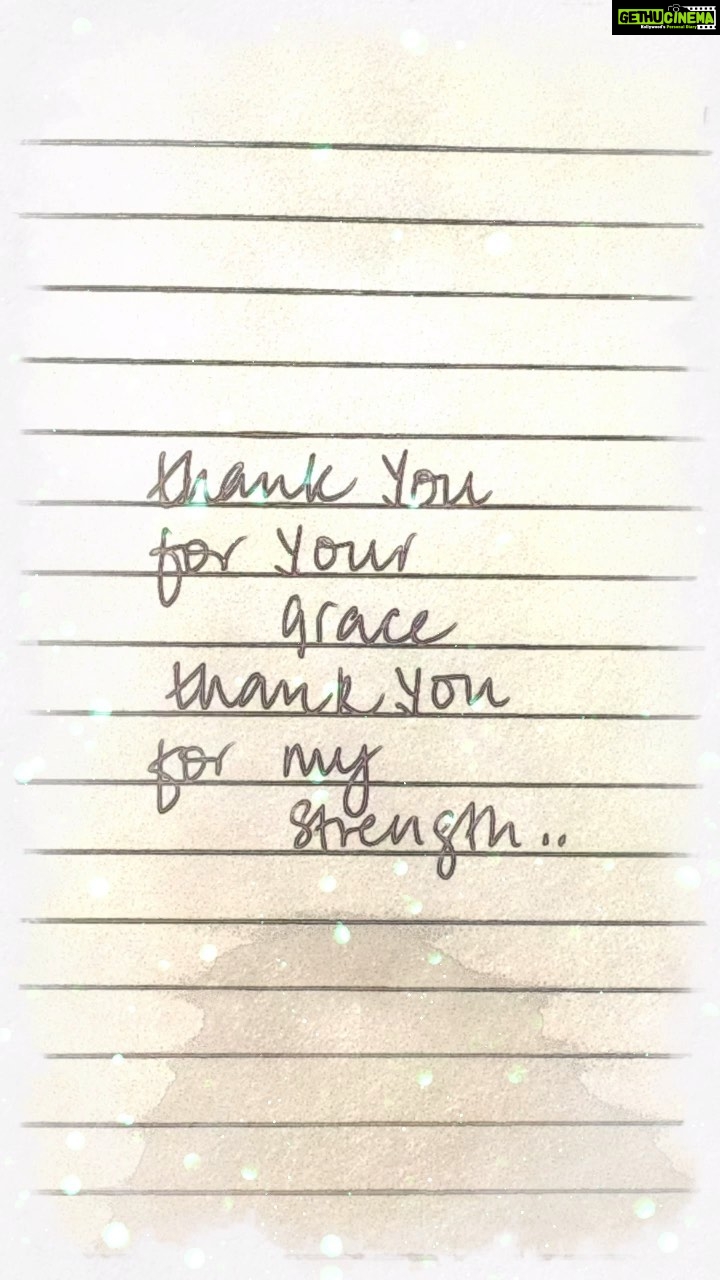 GETHUCINEMA
Kollywood's Personal Diary
thank You
for Your
grace
thank You
for my
strength..